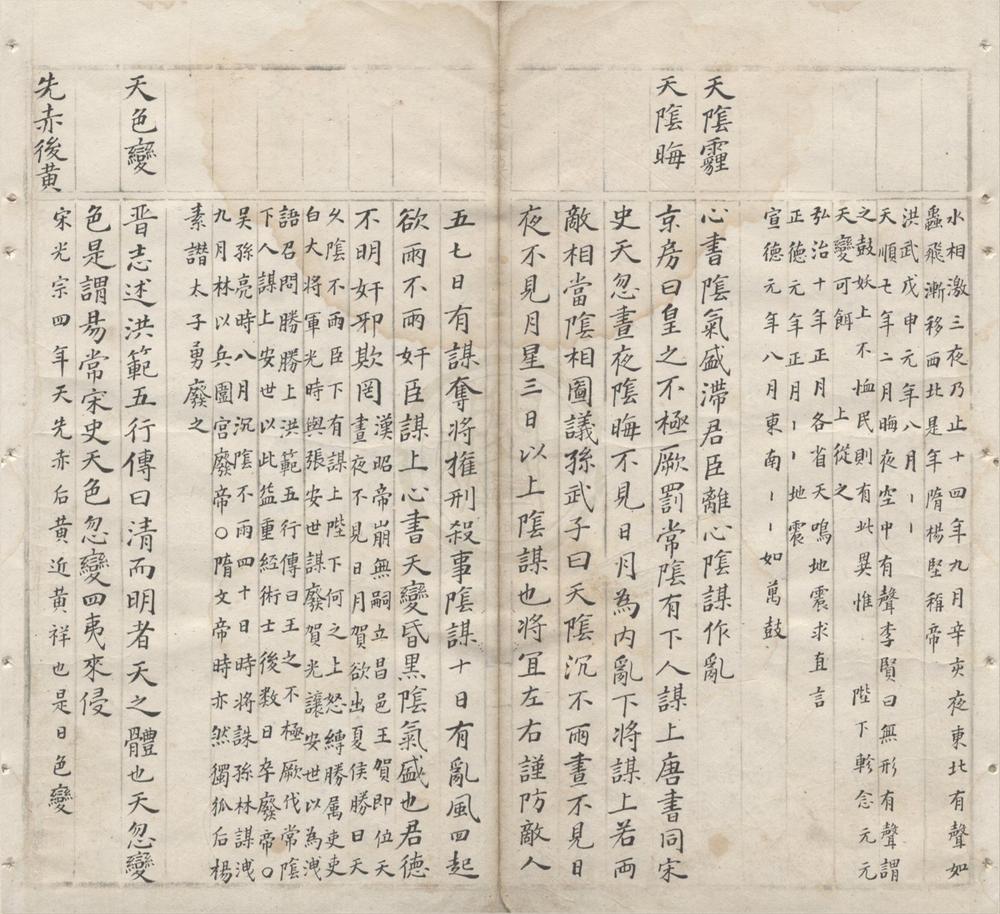 水相激三夜乃止十四年九月辛亥夜東北有聲如
蟲飛漸移西北是年隋楊堅稱帝
洪武戊申元年八月〡〡
天順七年二月晦夜空中有聲李賢曰無形有聲謂
之鼓妖上不恤民則有此異惟 陛下軫念元元
天變可餌 上從之
弘治十年正月各省天鳴地震求直言
正德元年正月〡〡地震
宣德元年八月東南〡〡如萬鼓
天陰霾
心書陰氣盛滯君臣離心陰謀作亂
天陰晦
京房曰皇之不極厥罰常陰有下人謀上唐書同宋
史天忽晝夜陰晦不見日月為內亂下將謀上若兩
敵相當陰相圖議孫武子曰天陰沉不雨晝不見日
夜不見月星三日以上陰謀也將宜左右謹防敵人
五七日有謀奪將權刑殺事陰謀十日有亂風四起
欲雨不雨奸臣謀上心書天變昏黑陰氣盛也君德
不明奸邪欺罔晝夜不見日月
漢昭帝崩無嗣立昌邑王賀即位天
欲出夏侯勝曰天
久陰不雨臣下有謀上陛下何之上怒縛勝属吏吏
白大將軍光時與張安世謀廢賀光讓安世以為洩
語召問勝勝上洪範五行傳曰王之不極厥代常陰
下人謀上安世以此益重經術士後数日卒廢帝〇
吳孫亮時八月沉陰不雨四十日時將誅孫林謀洩
九月林以兵圍宮廢帝〇隋文帝時亦然獨狐后楊
素譖太子勇廢之
天色變
晋志述洪範五行傳曰清而明者天之體也天忽變
色是謂昜常宋史天色忽變四夷來侵
先赤後黄
宋光宗四年天先赤后黄近黄祥也是日色變